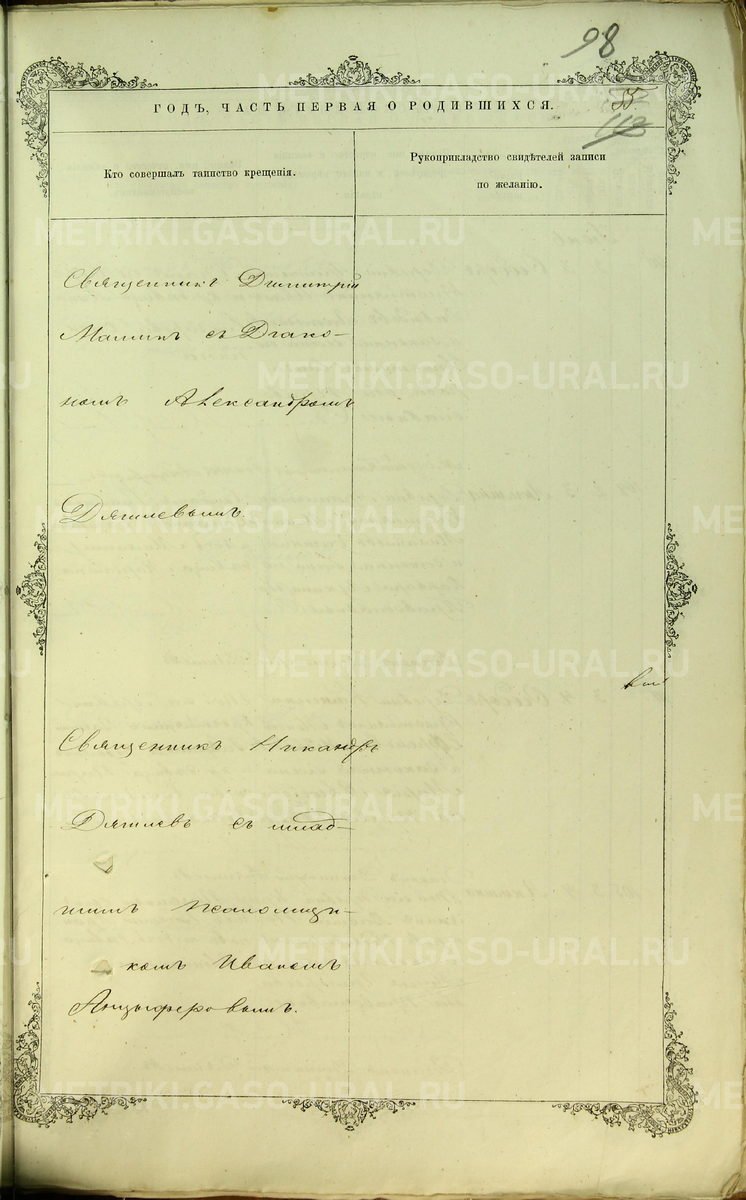 98
55
113
ГОДЪ, ЧАСТЬ ПЕРВАЯ О РОДИВШИХСЯ.
Кто совершалъ таинство крещенія.
Рукоприкладство свидѣтелей записи
по желанію.
Священникъ Димитрій
с Діако-
номъ Александромъ
Дягилевымъ.
Священникъ Никандръ
Дягилевъ съ млад-
шимъ Псаломщи-
комъ Иваномъ
Анцыферовымъ.
METRIKI.GASO-URAL.RU